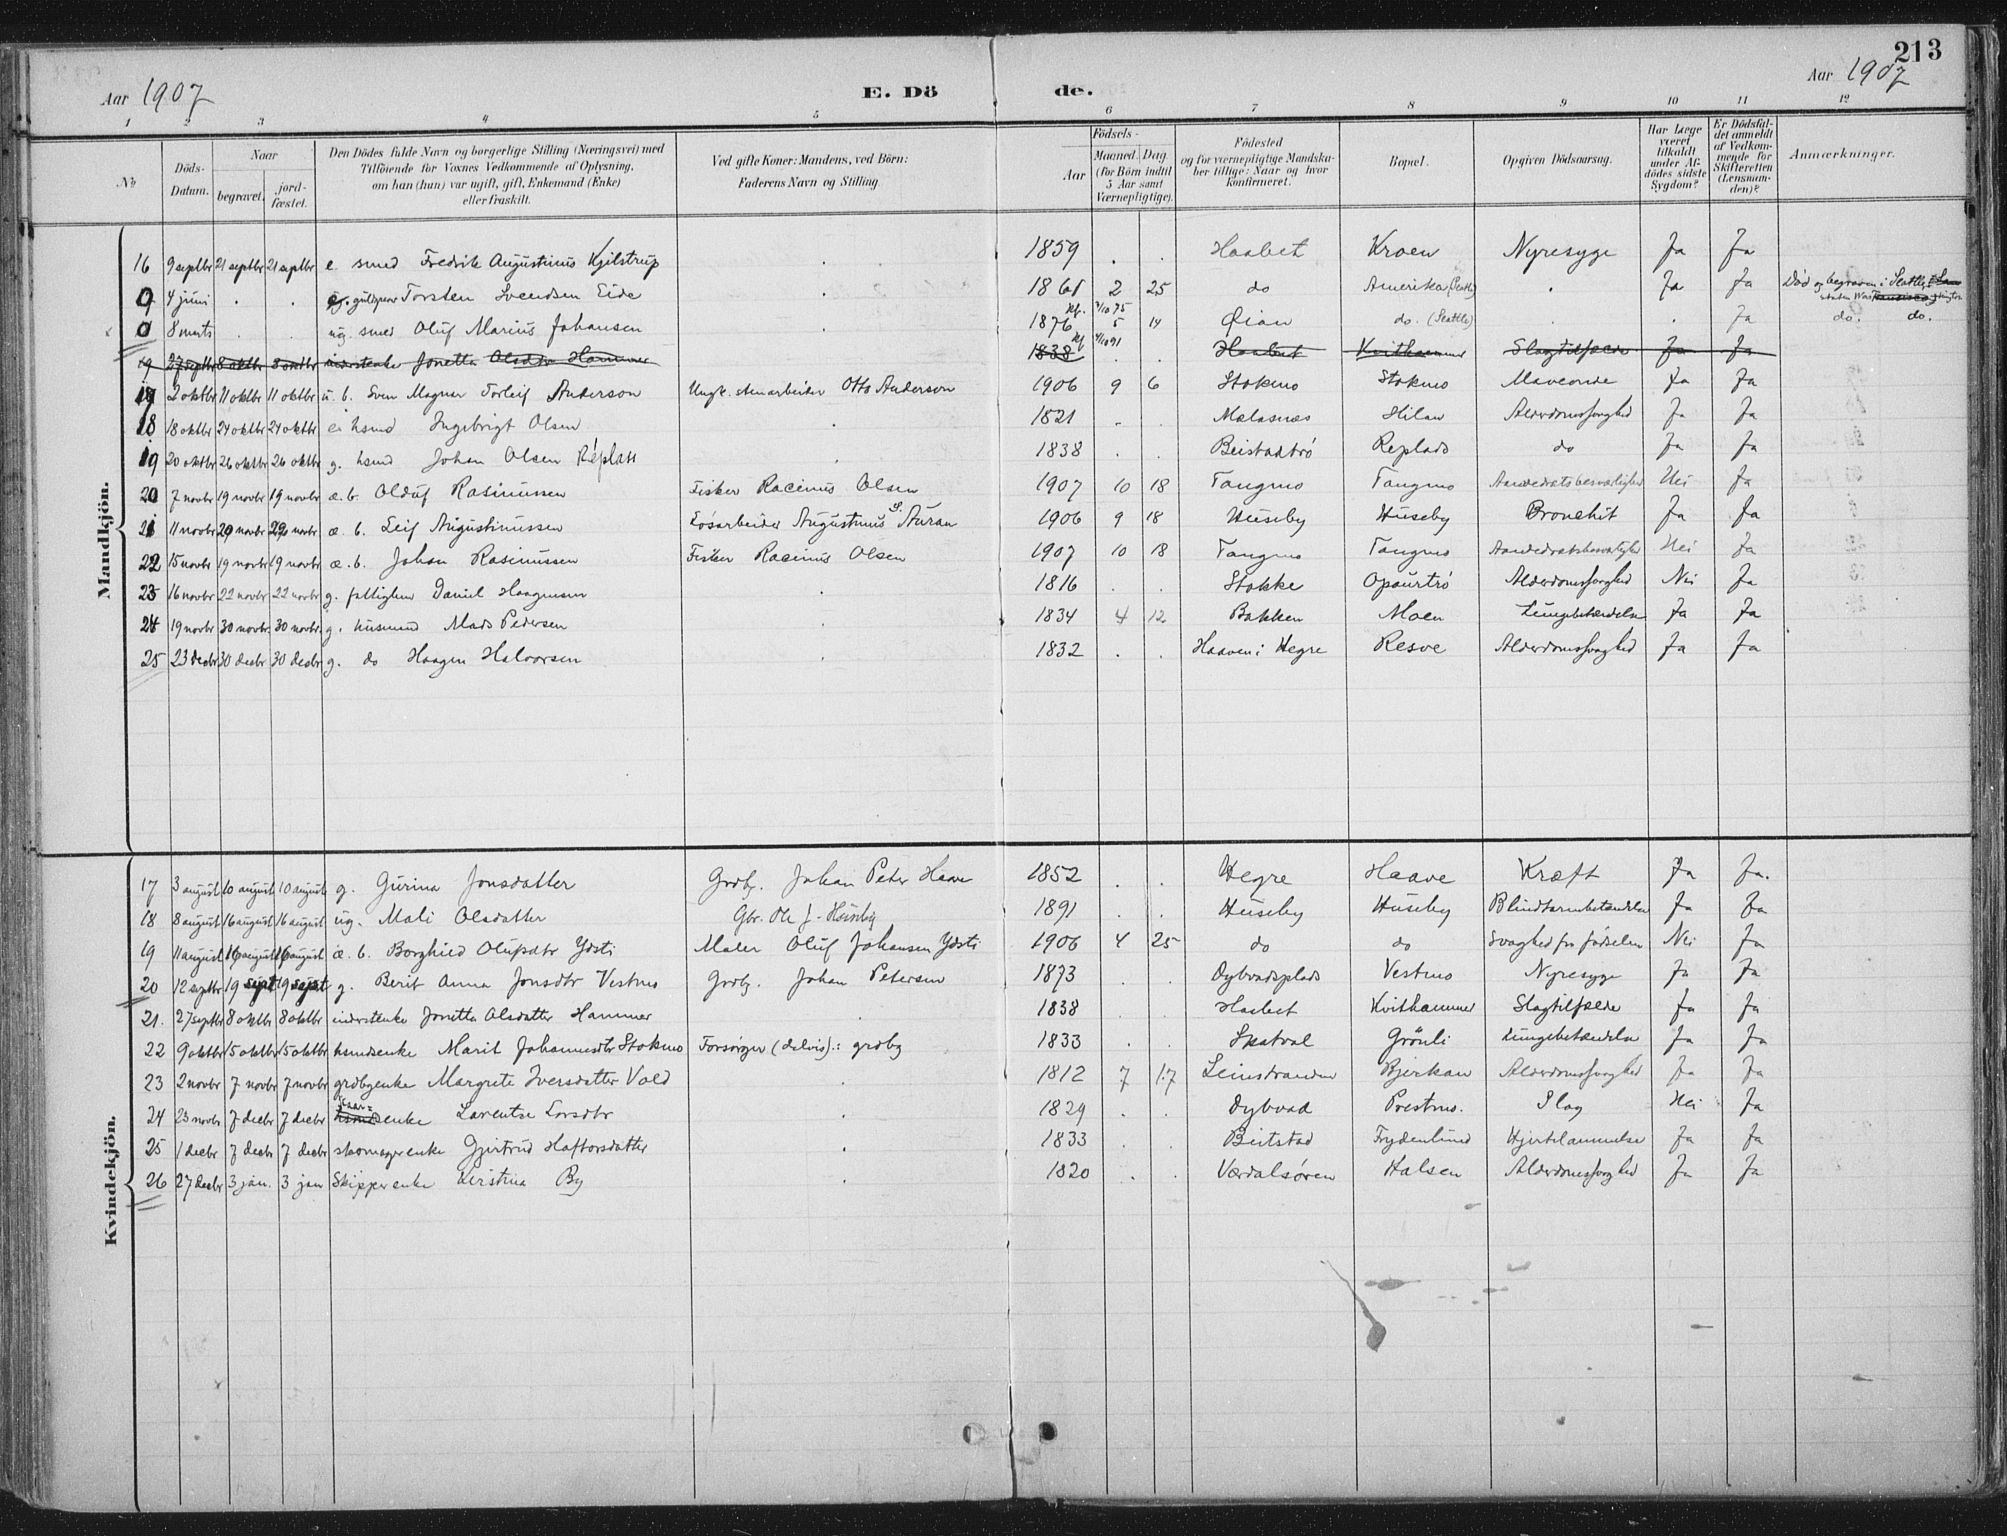 213
Aar 1907
E. Dö de.
Aar 1907
1 2 3 4 5 6 7 8 9 10 11 12
No
Döds-Datum.
Naar
begravet.
jord-fæstet.
Den Dödes fulde Navn og borgerlige Stilling (Næringsvei) med
Tilföiende for Voxnes Vedkommende af Oplysning,
om han (hun) var ugift, gift, Enkemand (Enke)
eller fraskilt.
Ved gifte Koner: Mandens, ved Börn:
Faderens Navn og Stilling.
Födsels-
Aar
Maaned. Dag
(for Börn indtil
5 Aar samt
Værnepligtige).
Födested
og for værnepligtige Mandska-
ber tillige: Naar og hvor
konfirmeret.
Bopæl.
Opgiven Dödsaarsag.
Har Læge
været
tilkaldt
under Af-
dödes sidste
Sygdom?
Er Dödsfal-
det anmeldt
af Vedkom-
mende for
Skifteretten
(Lensman-
den)?
Anmærkninger.
Mandkjön.
16 9 septbr 21 septbr 21 septbr e. smed Fredrik Augustinus Kjilstrup . 1859 . . Haabet Kroen Nyresyge Ja Ja
0 4 juni . . Torsten Svendsen Eide . 1861 2 25 do Amerika (Seattle) . Ja Ja Död og begraven i Seattle
0 8 marts . . ug. smed Oluf Marius Johansen . 1876 5 14 Öian do. (Seattle) . . Ja do. do.
19 27 septbr 8 oktbr 8 oktbr inderstenke Jonetta Olsdatr Hammer 1838 . . Haabet Kvithammer Slagtilfælde Ja Ja
17 2 oktbr 11 oktbr 11 oktbr u. b. Sven Magnar Torleif Anderson Ungk. Otto Anderson 1906 9 6 Stokmo Stokmo Maveonde Ja Ja
18 18 oktbr 24 oktbr 24 oktbr Ingebrigt Olsen . 1821 . . Mælasnæs Hilan Alderdomssvaghed Ja Ja
19 20 oktbr 26 oktbr 26 oktbr g. hsmd Johan Olsen Réplass . 1838 . . Beistadtrö Replads do Ja Ja
20 7 novbr 19 novbr 19 novbr æ. b. Olduf Rasinussen Fisker Racinus Olsen 1907 10 18 Tangmo Tangmo Aandedrætsbesværlighed Nei Ja
21 11 novbr 29 novbr 29 novbr æ. b. Leif Augustinussen Lösarbeider Augustinus S. Auran 1906 9 18 Huseby Huseby Bronchit Ja Ja
22 15 novbr 19 novbr 19 novbr æ. b. Johan Rasinussen Fisker Racinus Olsen 1907 10 18 Tangmo Tangmo Aandedrætsbesværlighed Nei Ja
23 16 novbr 22 novbr 22 novbr g. fattiglem Daniel Haagensen . 1816 . . Stokke Opaurtrö Alderdomssvaghed Nei Ja
24 19 novbr 30 novbr. 30 novbr. g. husmand Mads Pedersen . 1834 4 12 Bakken Moen Lungebetændelse Ja Ja
25 23 decbr 30 decbr 30 decbr g. do Haagen Halvorsen . 1832 . . Haaven i Hegre Resve Alderdomssvaghed Ja Ja
Kvindekjön.
17 3 august 10 august 10 august g. Gurina Jonsdatter Grdbr. Johan Peter Haave 1852 . . Hegre Haave Kræft Ja Ja.
18 8 august 16 august 16 august ug. Mali Olsdatter Gbr. Ole J. Huseby 1891 . . Huseby Huseby Blindtarmbetændelse Ja Ja
19 11 august 16 august 16 august æ. b. Borghild Olufsdtr Ydsti Maler Oluf Johansen Ydsti 1906 4 25 do do Svaghed fra födselen Nei Ja
20 12 septbr 19 sept 19 sept g. Berit Anna Jonsdtr Vestmo Grdbr. Johan Petersen 1873 . . Dybvadsplads Vestmo Nyresyge Ja Ja
21. 27 septbr 8 oktbr 8 oktbr inderstenke Jonetta Olsdatter Hammer . 1838 . . Haabet Kvithammer Slagtilfælde Ja Ja
22 9 oktbr 15 oktbr 15 oktbr husmdsenke Marit Johannesdtr Stokmo Forsörger (delvis): grdbr 1833 . . Skatval Grönli Lungebetændelse Ja Ja
23 2 novbr 7 novbr 7 novbr grdbrenke Margrete Iversdatter Vold . 1812 7 17 Leinstranden Bjerkan Alderdomssvaghed Ja Ja
24 23 novbr 7 decbr 7 decbr kaar= enke Lorentse Larsdtr . 1829 . . Dybvad Prestmo. Slag Nei Ja
25 1 decbr 7 decbr 7 decbr skomagerenke Gjertrud Haftorsdatter . 1833 . . Beitstad Frydenlund Hjertelammelse Ja Ja
26 27 decbr 3 jan. 3 jan Skipperenke Kirstina By . 1820 . . Værdalsören Halsen Alderdomssvaghed Ja Ja